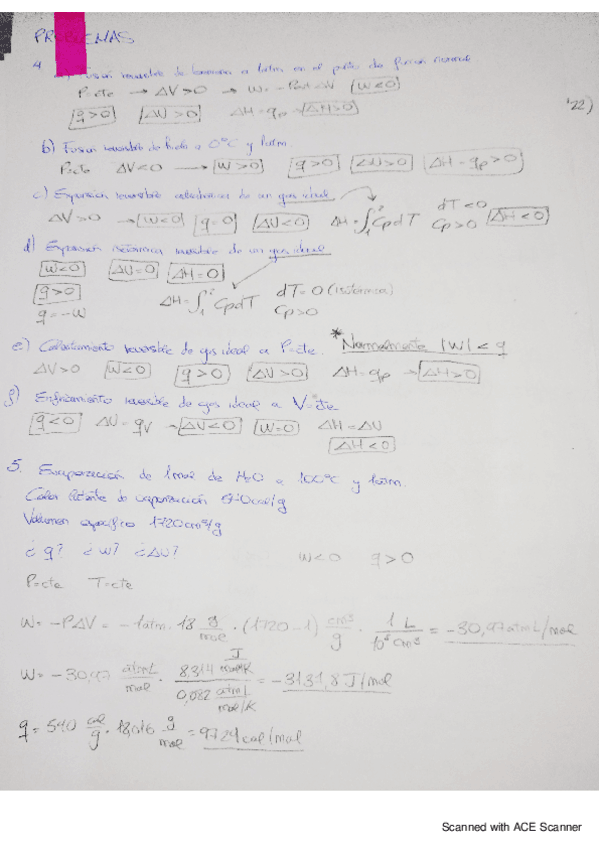 PROBLEMAS
4
Fusión reversible de benceno a 1atm en el punto de fusión normal
P=cte → ΔV>0 → W=-Pext·ΔV W<0
q>0 ΔU>0 ΔH=qp → ΔH>0
'22)
b) Fusión reversible de hielo a 0ºC y 1atm.
P=cte ΔV<0 → W>0 q>0 ΔU>0 ΔH=qp>0
c) Expansión reversible adiabática de un gas ideal
ΔV>0 → W<0 q=0 ΔU<0 ΔH=∫₁² CpdT dT<0 Cp>0 ΔH<0
d) Expansión isotérmica reversible de un gas ideal
W<0 ΔU=0 ΔH=0
q>0 ΔH=∫₁² CpdT dT=0 (isotérmica)
q=-W Cp>0
e) Calentamiento reversible de gas ideal a P=cte. *Normalmente |W|<q
ΔV>0 W<0 q>0 ΔU>0 ΔH=qp → ΔH>0
f) Enfriamiento reversible de gas ideal a V=cte
q<0 ΔU=qv → ΔU<0 W=0 ΔH=ΔU
ΔH<0
5. Evaporación de 1mol de H2O a 100ºC y 1atm.
Calor latente de vaporización 540cal/g
Volumen específico 1720cm³/g
¿q? ¿W? ¿ΔU? W<0 q>0
P=cte T=cte
W=-PΔV=-1atm·18 g/mol·(1720-1) cm³/g · 1L/10³cm³ = -30,97atmL/mol
W=-30,97 atmL/mol · 8,314 J/mol·K / 0,082 atmL/mol·K = -3131,8 J/mol
q=540 cal/g · 18,016 g/mol = 9729cal/mol
Scanned with ACE Scanner